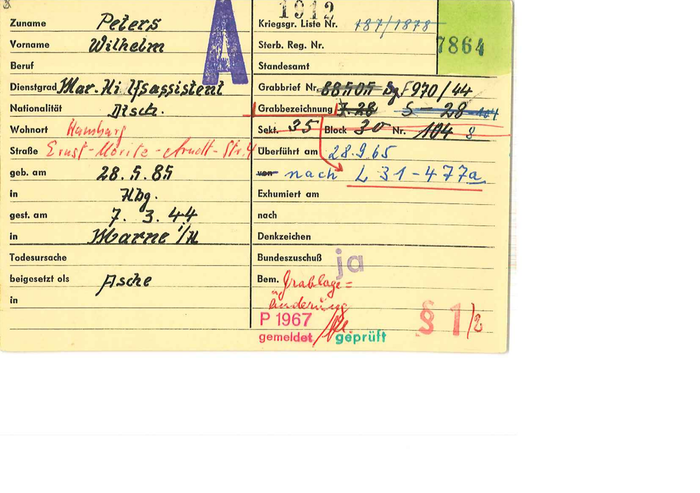 A
1912
7864
Zuname Peters
Vorname Wilhelm
Beruf
Dienstgrad Mar. Hilfsassistent
Nationalität Dtsch.
Wohnort Hamburg
Straße Ernst-Moritz-Arndt-Str. 4
geb. am 28.5.85
in Hbg.
gest. am 7. 3. 44
in Marne i/H
Todesursache
beigesetzt als Asche
in
Kriegsgr. Liste Nr. 187/1878
Sterb. Reg. Nr.
Standesamt
Grabbrief Nr. 88505 F970/44
Grabbezeichnung J 28 S - 28
Sekt. 35 Block 30 Nr. 104 8
Überführt am 28.9.65
von nach L 31-477a
Exhumiert am
nach
Denkzeichen
Bundeszuschuß ja
Bem. Grablage=
änderung
P 1967
gemeldet geprüft
§ 1/2